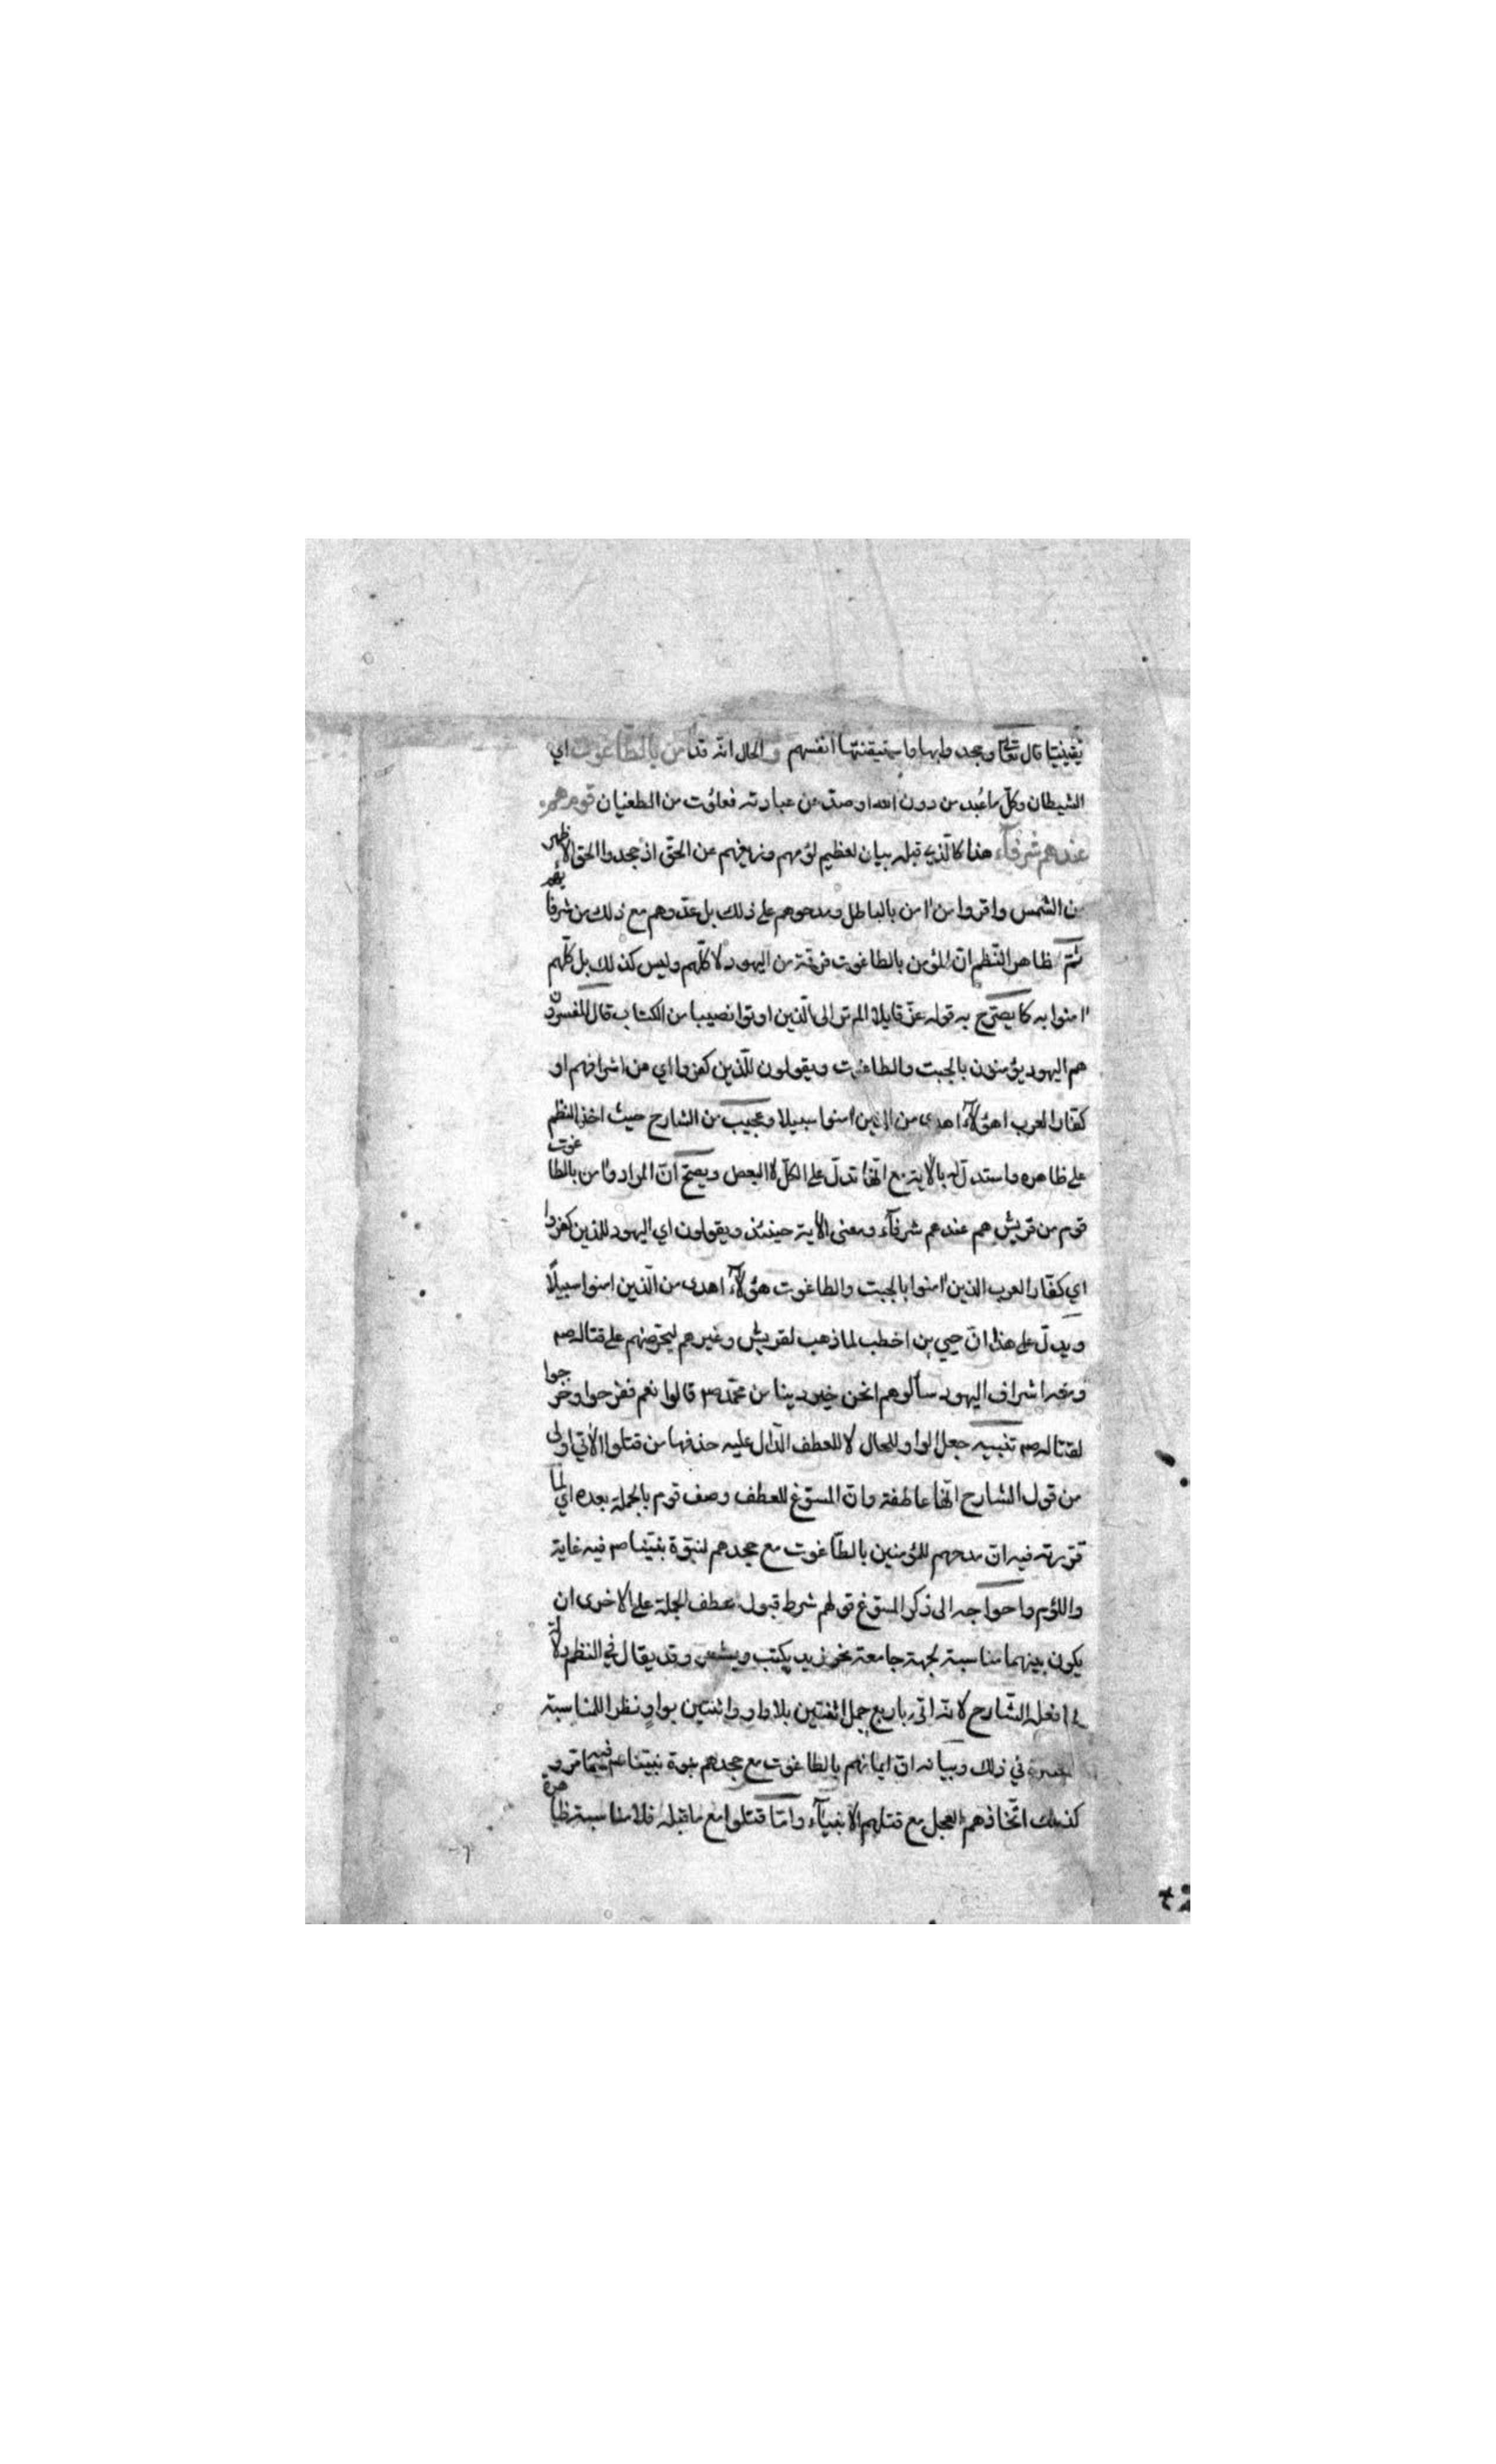 يقينيا قال تعالى وجحدوا بها واستيقنتها انفسهم والحال انه قد آمن بالطاغوت اي
الشيطان وكل ما عُبد من دون الله او صدّ عن عبادته فعلوت من الطغيان قوم هم
عندهم شرفآء هذا كالذي قبله بيان لعظيم لؤمهم وزيغهم عن الحق اذ جحدوا الحق الاظهر
من الشمس واقروا من اٰمن بالباطل ومدحوهم على ذلك بل عدّوهم مع ذلك من شرفائهم
ثمّ ظاهر النّظم انّ المؤمن بالطاغوت فرقة من اليهود لا كلّهم وليس كذلك بل كلّهم
اٰمنوا به كما يصرّح به قوله عزّ قايلا الم تر الى الّذين اوتوا نصيبا من الكتاب قال المفسرون
هم اليهود يؤمنون بالجبت والطاغوت ويقولون للّذين كفروا اي من اشرافهم او
كفّار العرب اهؤلآء اهدى من الذين امنوا سبيلا وعجيب من الشارح حيث اخذ النظم
على ظاهره واستدلّ له بالاية مع انّها تدلّ على الكلّ لا البعض ويصحّ انّ المراد واٰمن بالطاغوت
قوم من قريش هم عندهم شرفآء ومعنى الآية حينئذ ويقولون اي اليهود للذين كفروا
اي كفّار العرب الذين اٰمنوا بالجبت والطاغوت هؤلآء اهدى من الّذين امنوا سبيلًا
ويدلّ على هذا انّ حيي بن اخطب لما ذهب لقريش وغيرهم ليحرّضهم على قتاله صم
ومعه اشراف اليهود سألوهم انحن خير دينا من محمّد صم قالوا نعم ففرحوا وخرجوا
لقتاله صم تنبيه جعل الواو للحال لا للعطف الّدال عليه حذفها من قتلوا الآتي اولى
من قول الشارح انّها عاطفة وانّ المسوّغ للعطف وصف قوم بالجملة بعده اي لما
قرّرته فيه انّ مدحهم للمؤمنين بالطّاغوت مع جحدهم لنبوّة نبيّنا صم فيه غاية
واللؤم واحواجه الى ذكر المسوّغ قولهم شرط قبول عطف الجملة على الاخرى ان
يكون بينهما مناسبة لجهة جامعة نحو زيد يكتب ويشعر وقد يقال في النظم دلالة
لما فعله الشّارح لانه اتى باربع جمل اثنتين بلا واو واثنتين بواوٍ نظرا للمناسبة
في ذلك وبيانه انّ ايمانهم بالطاغوت مع جحدهم نبوة نبيّنا عم فيه ما مرّ و
كذلك اتّخاذهم العجل مع قتلهم الانبيآء وامّا قتلوا مع ما قبله فلا مناسبة ظاهرة